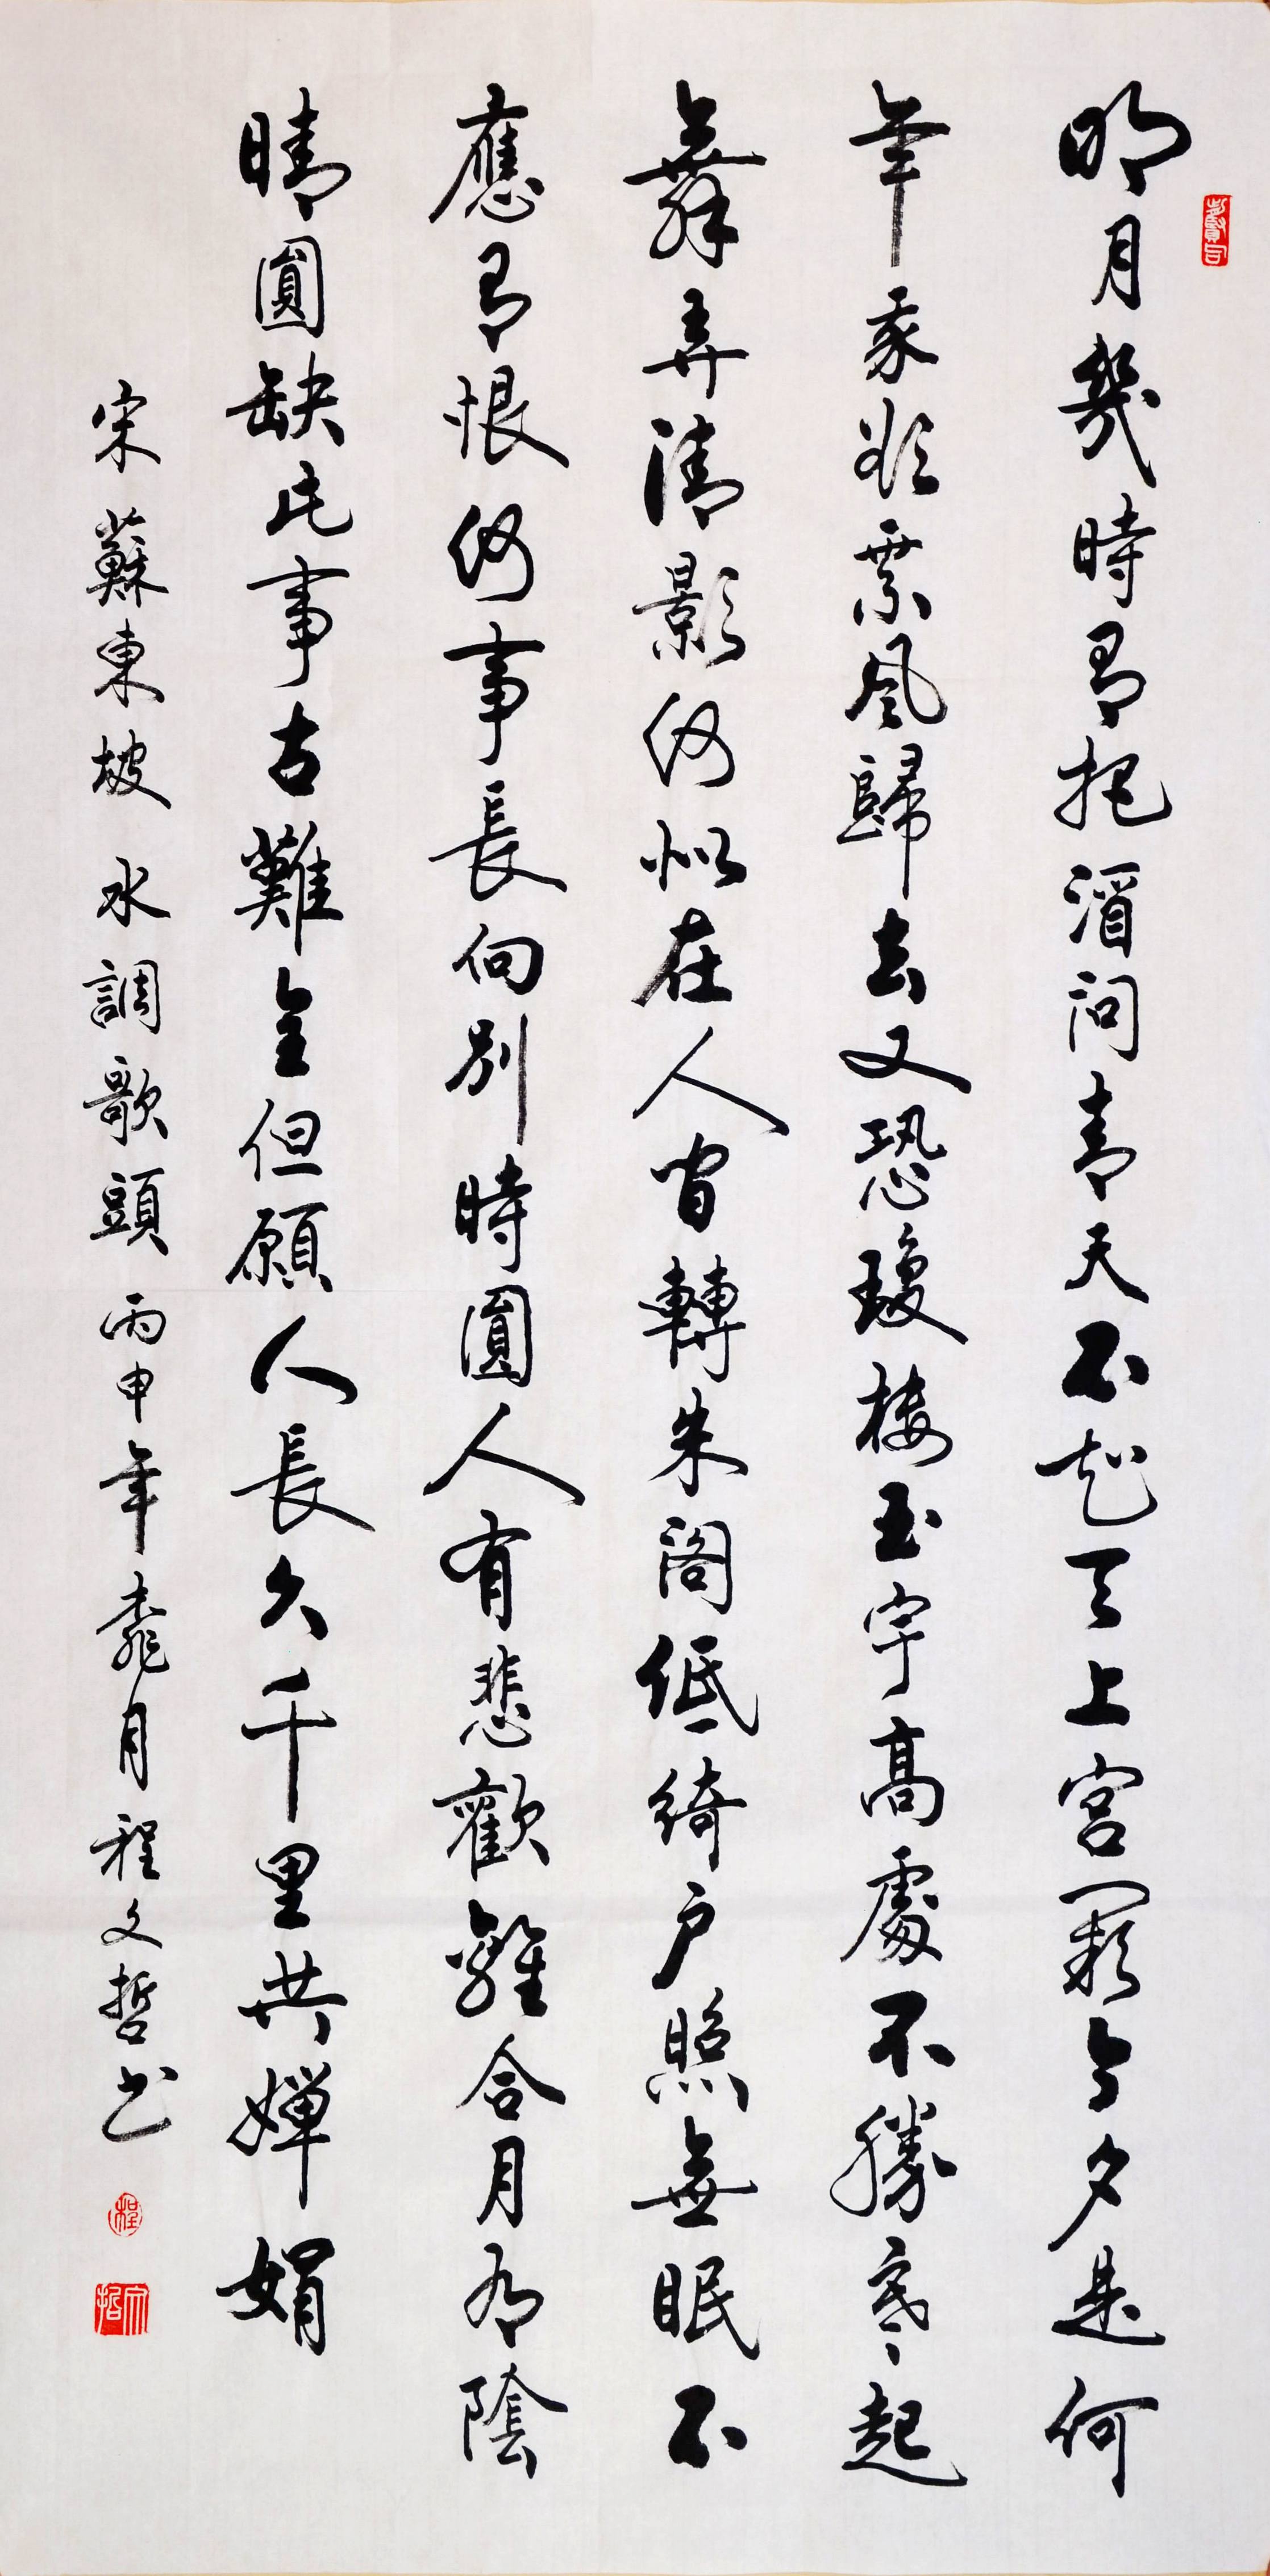 明月幾時有把酒問青天不知天上宮闕今夕是何
年我欲乘風歸去又恐瓊樓玉宇高處不勝寒起
舞弄清影何似在人間轉朱閣低綺户照無眠不
應有恨何事長向別時圓人有悲歡離合月有陰
晴圓缺此事古難全但願人長久千里共嬋娟
宋蘇東坡水調歌頭丙申年桃月程文哲书
程
文哲